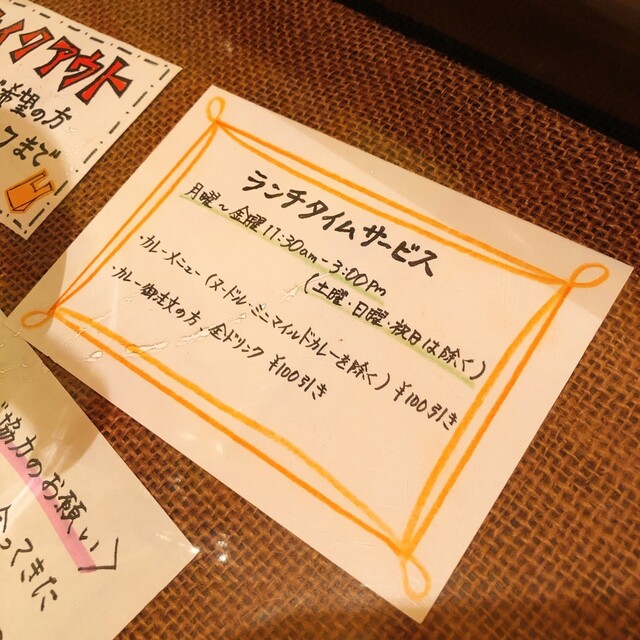 イクアウト
希望の方
フまで
ランチタイムサービス
月曜～金曜 11:30am-3:00Pm
(土曜・日曜・祝日は除く)
・カレーメニュー(ヌードル・ミニマイルドカレーを除く) ¥100引き
・カレー御注文の方、全ドリンク ¥100引き
協力のお願い
ってきに